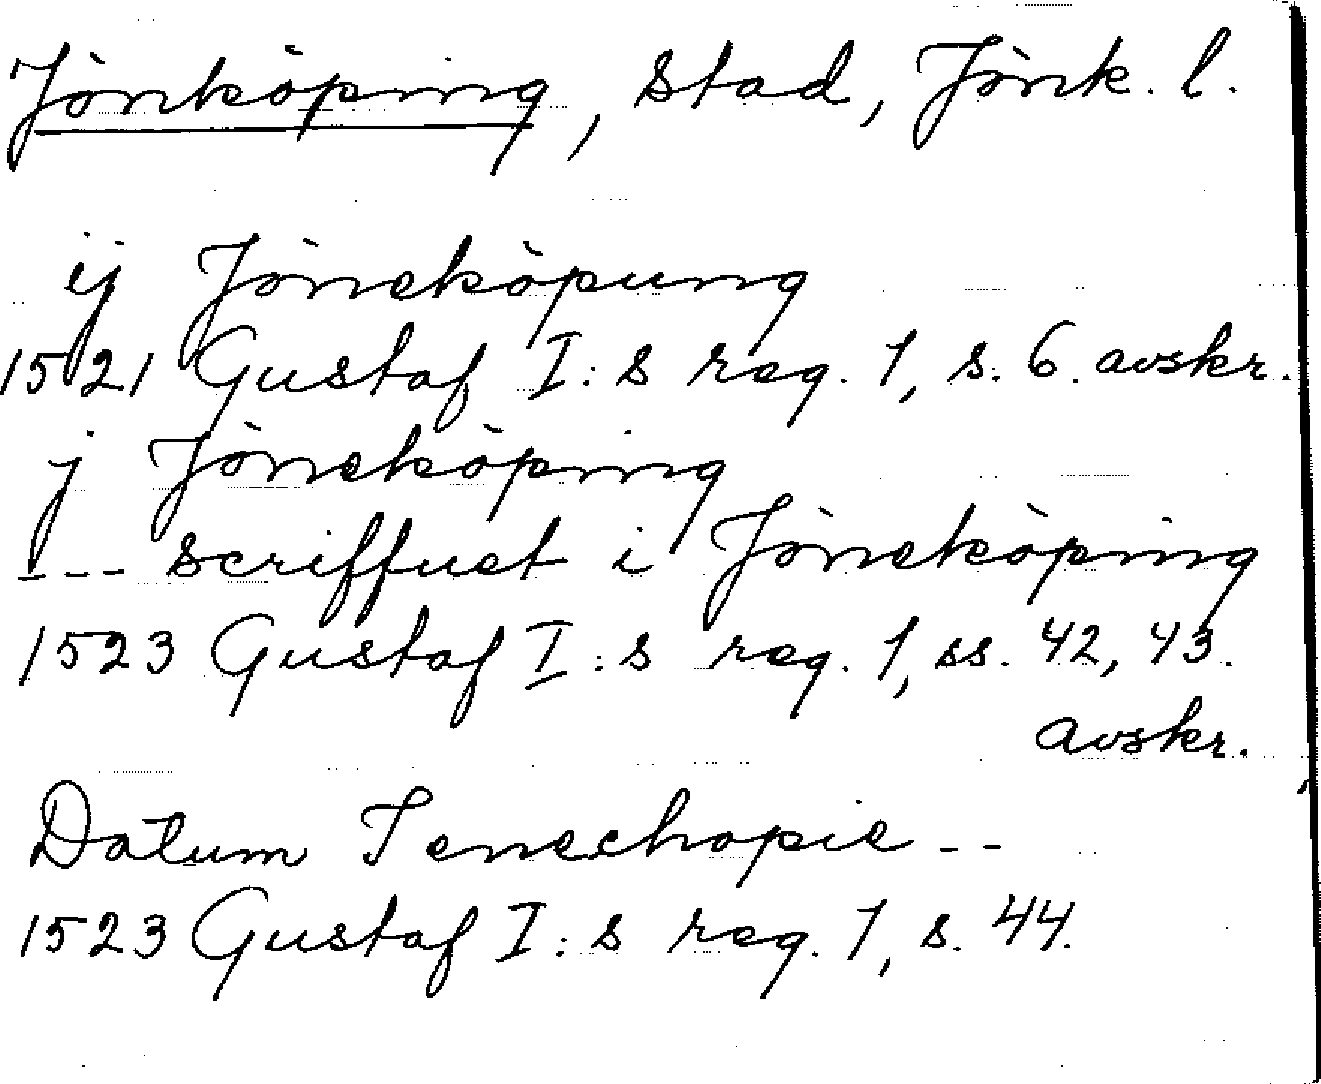 Jönköping, stad, Jönk. l.
ij Jöneköpung
1521 Gustaf I:s reg. 1, s. 6. avskr.
j Jöneköping
--- scriffuet i Jöneköping
1523 Gustaf I:s reg. 1, ss. 42, 43.
avskr.
Datum Ienechopie --
1523 Gustaf I:s reg. 1, s. 44.